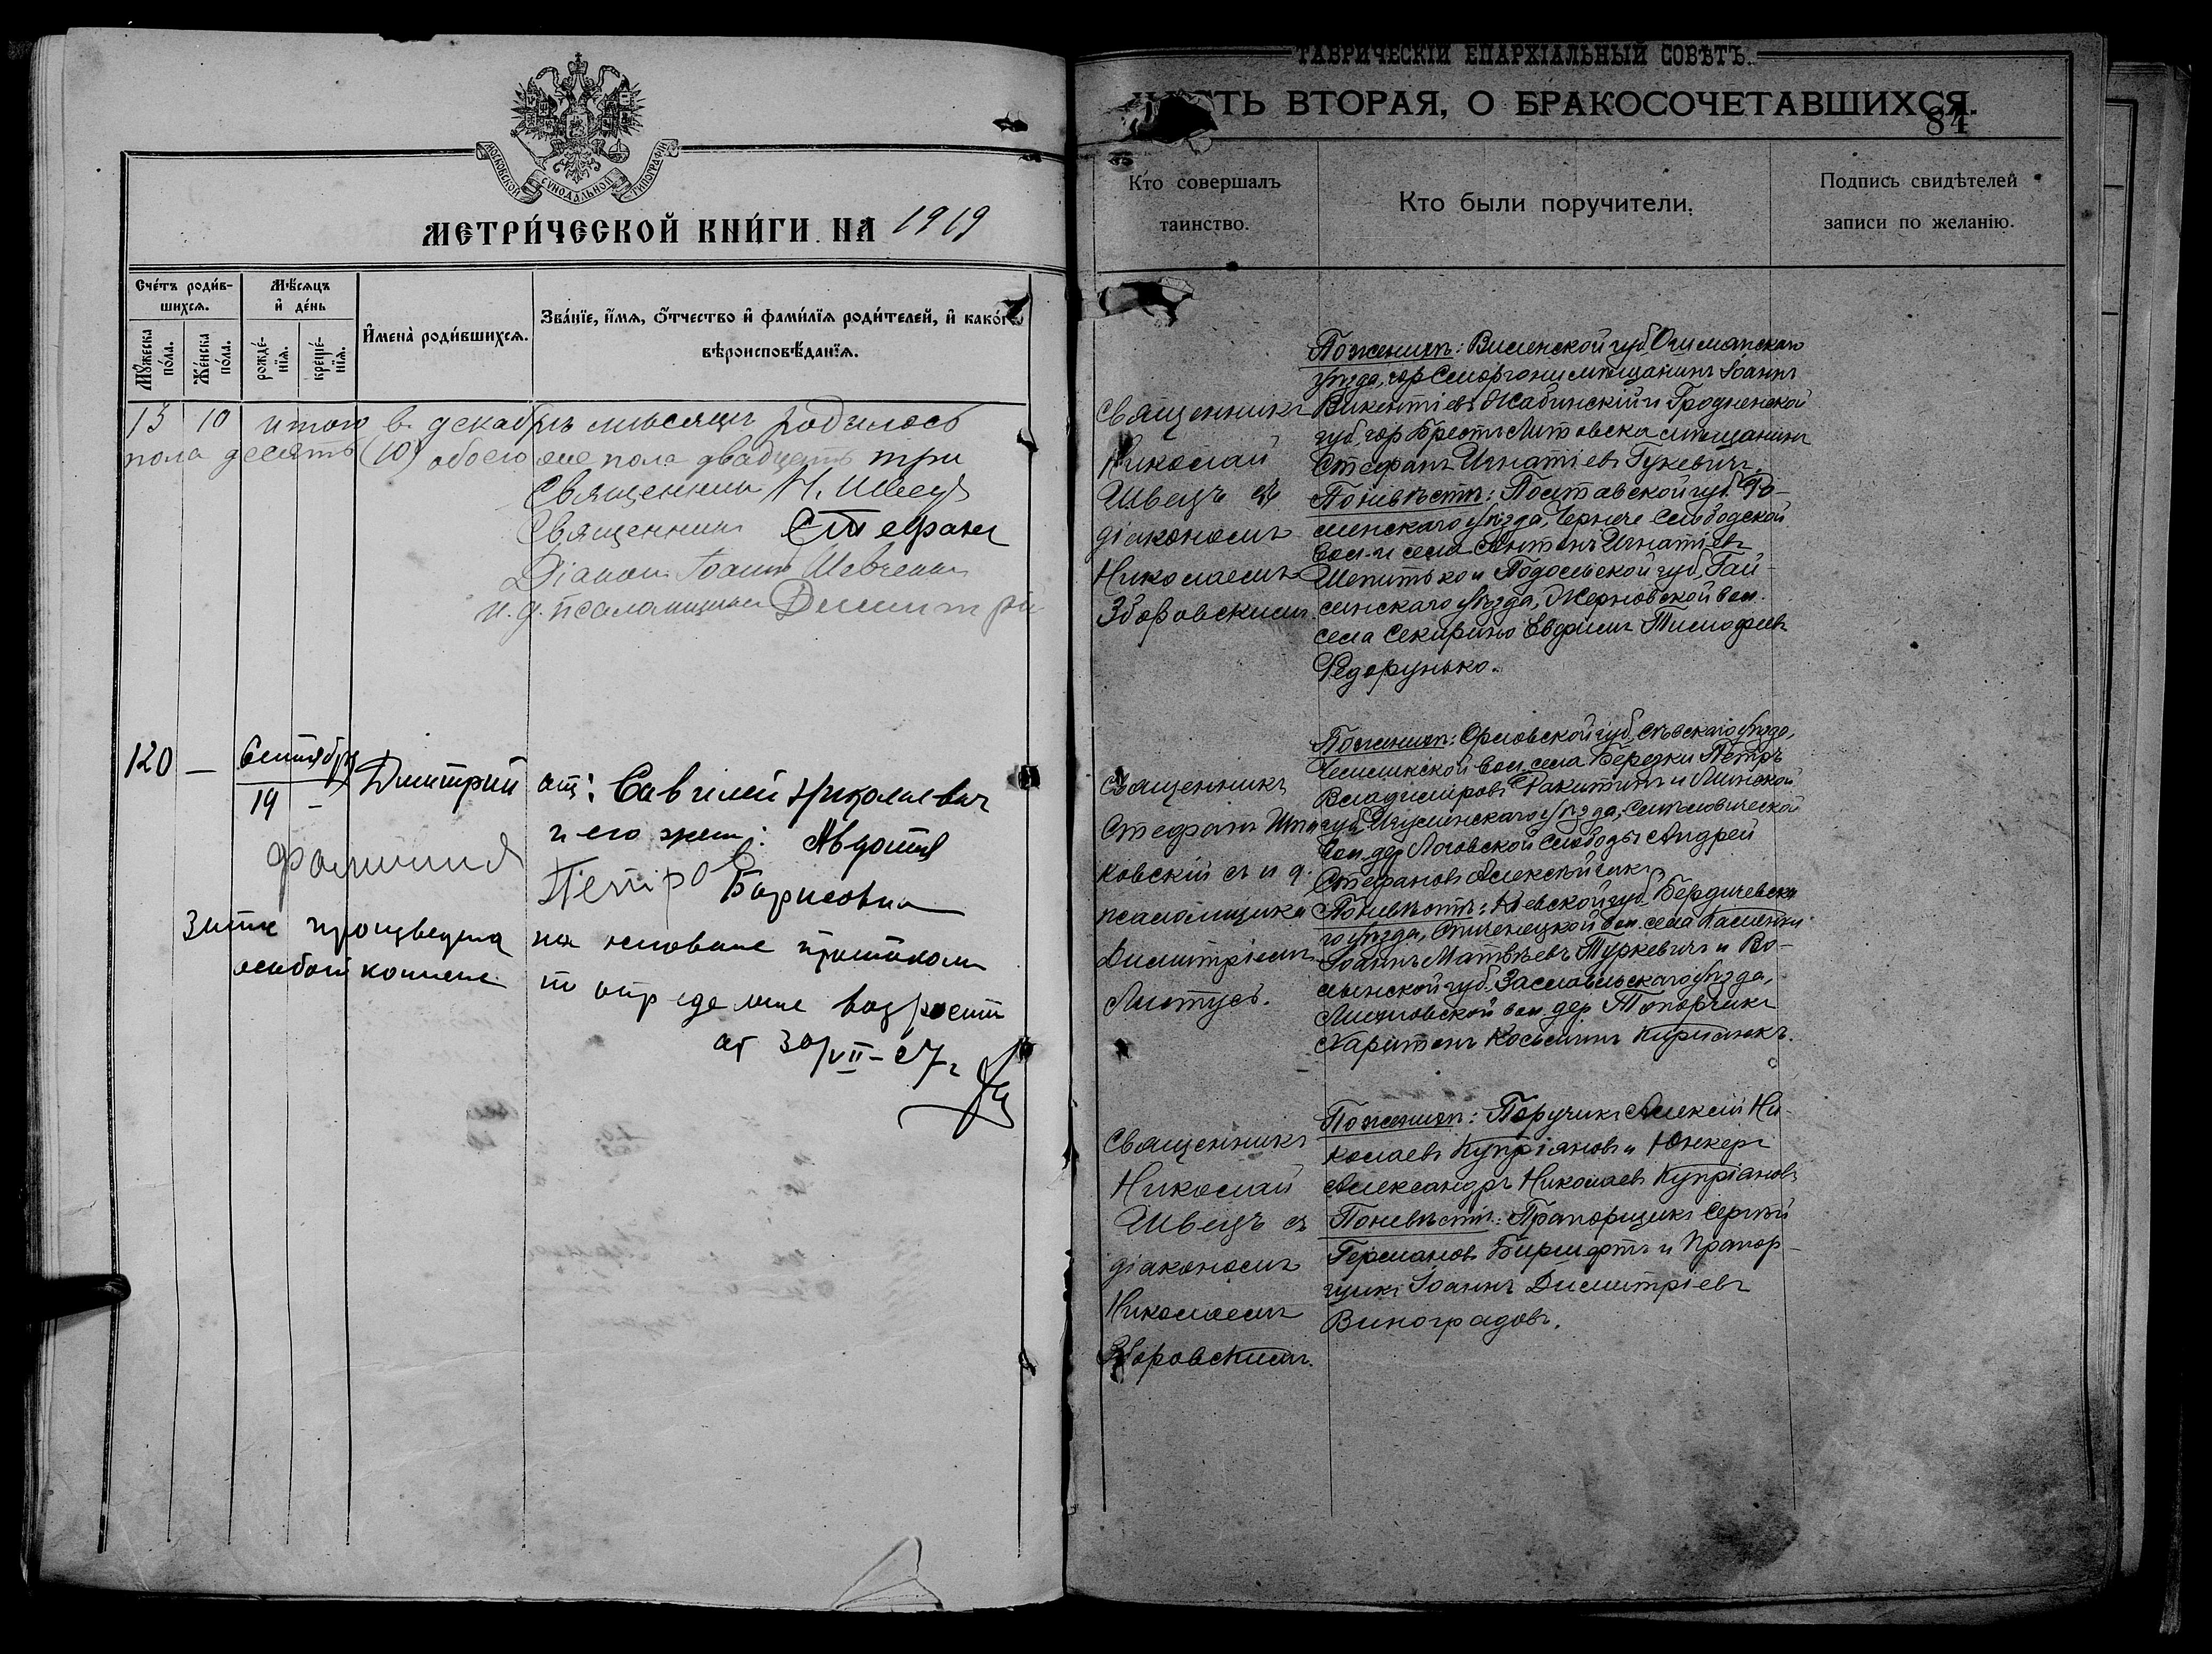 МОСКОВСКОЙ СѴНОДАЛЬНОЙ ТИПОГРАФІИ
МЕТРИ́ЧЕСКОЙ КНИ́ГИ НА 1919
Сче́тъ роди́в-
шихсѧ.
Мѣ́сѧцъ
и҆ де́нь
Мꙋ́жеска
по́ла.
Же́нска
по́ла.
рожде́-
нїѧ.
креще́-
нїѧ.
И҆мена̀ роди́вшихсѧ.
Зва́нїе, и҆́мѧ, ѻ҆́тчество и҆ фами́лїѧ роди́телей, и҆ како́гѡ
вѣроисповѣ́данїѧ.
13 10 итого въ декабрѣ мѣсяцѣ родилось
пола десять (10) обоего же пола двадцать три
Священникъ Н. Швецъ
Священникъ Стефанъ
Діаконъ Іоаннъ Шевченко
и. д. псаломщика Димитрій
120 — Сентября
19 —
Дмитрий
от: Савелий Николаевич
и его жена: Авдотия
Борисовна
фамилия
Петров
Запись произведена на основание протокола
особой комисие по определение возраста
от 30/VII-27 г
ТАВРИЧЕСКІЙ ЕПАРХІАЛЬНЫЙ СОВѢТЪ.
ЧАСТЬ ВТОРАЯ, О БРАКОСОЧЕТАВШИХСЯ.
84
Кто совершалъ
таинство.
Кто были поручители.
Подпись свидѣтелей
записи по желанію.
Священникъ
Николай
Швецъ съ
діакономъ
Николаемъ
Зборовскимъ.
По женихѣ: Виленской губ. Ошмянскаго
уѣзда, гор Сморгони мѣщанинъ Іоаннъ
Викентіевъ Жабинскій и Гродненской
губ, гор Брестъ-Литовска мѣщанинъ
Стефанъ Игнатіевъ Гукевичъ.
По невѣстѣ: Полтавской губ. Ро-
менскаго уѣзда, Черниче Слободской
вол. и села Антонъ Игнатіевъ
Шепитько и Подольской губ, Гай-
синскаго уѣзда, Жерновской вол.
села Секирино Евфимъ Тимофеевъ
Федорунько.
Священникъ
Стефанъ
ковскій съ и д.
псаломщика
Димитріемъ
Лютусъ.
По женихѣ: Орловской губ, Сѣвскаго уѣзда,
вол, села Березки Петръ
Владиміровъ Ракитинъ и Минской
губ, Игуменскаго уѣзда,
вол. дер Логовской Слободы Андрей
Стефановъ Алексѣйчикъ
По невѣстѣ: Кіевской губ. Бердичевска
го уѣзда, вол. села
Іоаннъ Матвѣевъ Туркевичъ и Во-
лынской губ. Заславльскаго уѣзда,
вол. дер Топорчикъ
Харитонъ Косьминъ Кирилюкъ.
Священникъ
Николай
Швецъ съ
діакономъ
Николаемъ
Зборовскимъ.
По женихѣ: Поручикъ Алексій Ни-
колаевъ Купріяновъ и Юнкеръ
Александръ Николаевъ Купріановъ
По невѣстѣ: Прапорщикъ Сергѣй
Германовъ и Прапор-
щикъ Іоаннъ Димитріевъ
Виноградовъ.